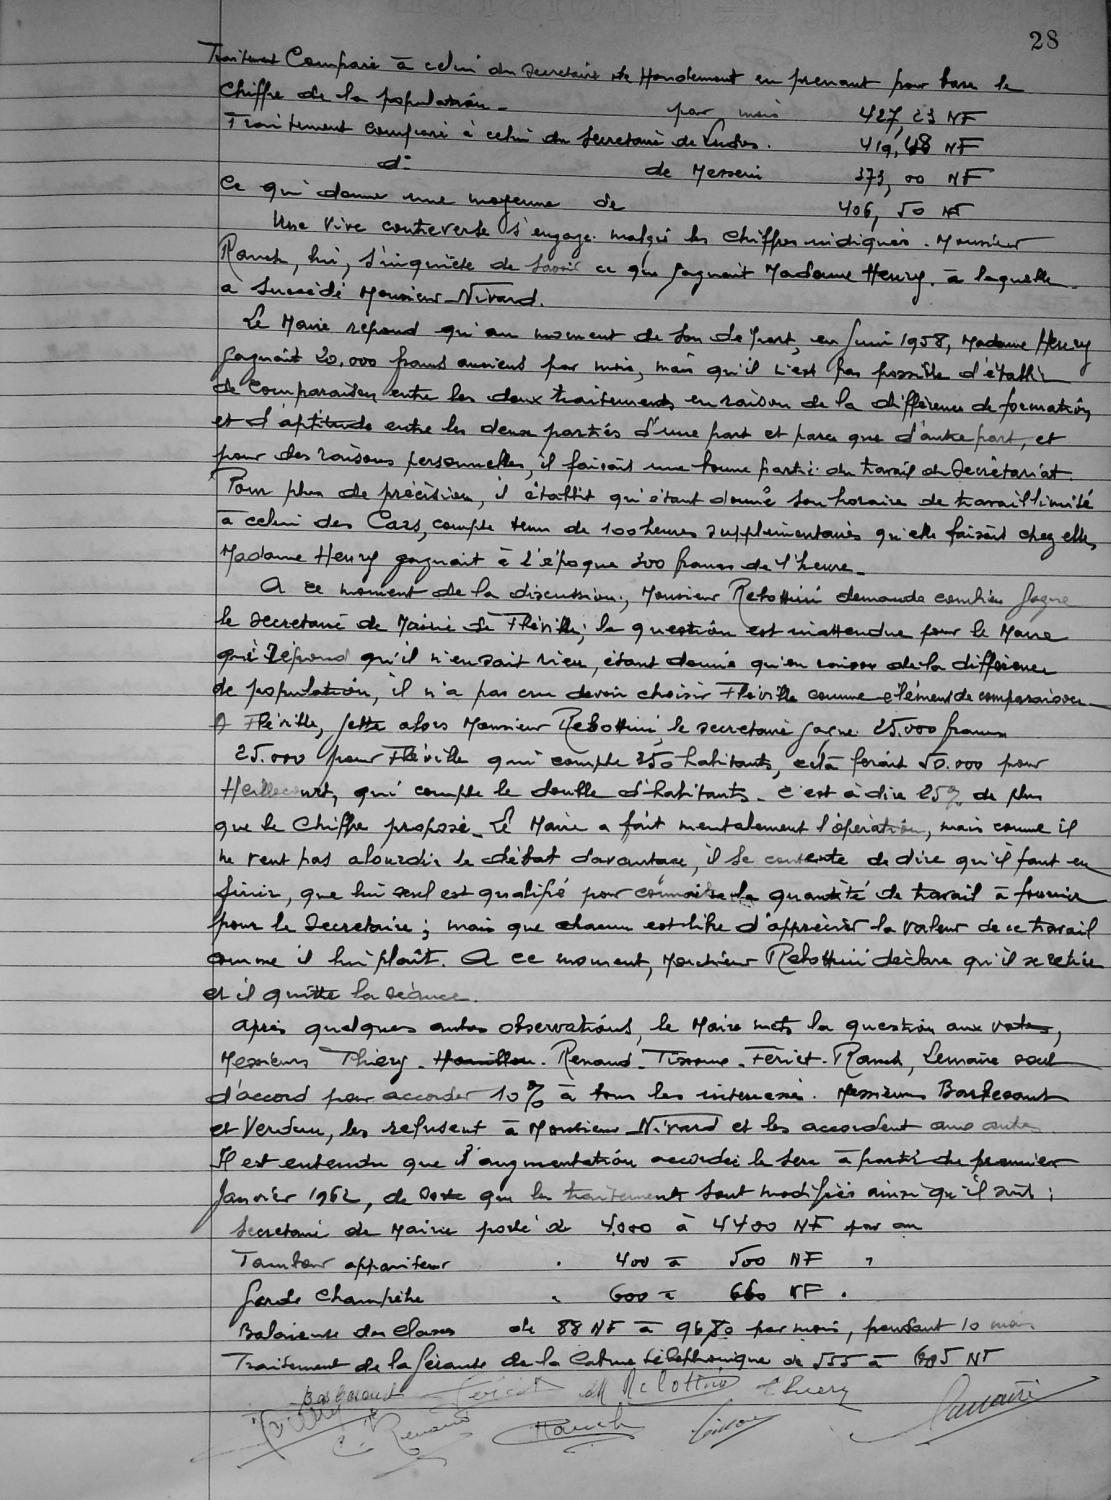 28
Traitement Comparé à celui du Secretaire de Houdemont en prenant pour base le
Chiffre de la population - par mois 427,23 NF
Traitement comparé à celui du Secretaire de Ludres. 419,48 NF
d° de Messein 373,00 NF
Ce qui donne une moyenne de 406,50 NF
Une vive controverse s'engage malgré les chiffres indiqués. Monsieur
Rauch, lui, s'inquiète de savoir ce que gagnait Madame Henry à laquelle
a succédé Monsieur Nivard.
Le Maire repond qu'au moment de son départ, en Juin 1958, Madame Henry
gagnait 20.000 francs anciens par mois, mais qu'il n'est pas possible d'établir
de comparaison entre les deux traitements en raison de la différence de formation
et d'aptitude entre les deux parties d'une part et parce que d'autre part, et
pour des raisons personnelles, il faisait une bonne partie du travail du Secrétariat.
Pour plus de précision, il établit qu'étant donné son horaire de travail limité
à celui des Cars, compte tenu de 100 heures supplémentaires qu'elle faisait chez elle,
Madame Henry gagnait à l'époque 300 francs de l'heure.
A ce moment de la discussion, Monsieur Rebottini demande combien gagne
le secretaire de Mairie de Fléville; la question est inattendue pour le Maire
qui répond qu'il n'en sait rien, étant donné qu'en raison de la différence
de population, il n'a pas cru devoir choisir Fléville comme élément de comparaison
A Fléville, jette alors Monsieur Rebottini, le secretaire gagne 25.000 francs
25.000 pour Fléville qui compte 350 habitants, cela ferait 50.000 pour
Heillecourt, qui compte le double d'habitants - c'est à dire 25% de plus
que le chiffre proposé. Le Maire a fait mentalement l'opération, mais comme il
ne veut pas alourdir le débat davantage, il se contente de dire qu'il faut en
finir, que lui seul est qualifié pour connaître la quantité de travail à fournir
pour le Secretaire; mais que chacun est libre d'apprécier la valeur de ce travail
comme il lui plaît. A ce moment, Monsieur Rebottini déclare qu'il se retire
et il quitte la séance.
Après quelques autres observations, le Maire mets la question aux votes,
Messieurs Thiery - Renaud - Tissoux - Fériet - Rauch, Lemaire sont
d'accord pour accorder 10% à tous les intéressés. Messieurs Barbesant
et Verdun, les refusent à Monsieur Nivard et les accordent aux autres
Il est entendu que l'augmentation accordée le sera à partir du premier
Janvier 1962, de sorte que les traitements sont modifiés ainsi qu'il suit:
Secretaire de Mairie porté de 4.000 à 4400 NF par an
Tambour appariteur . 400 à 500 NF "
Garde Champêtre . 600 à 660 NF .
Balaieuse des classes de 88 NF à 96,80 par mois, pendant 10 mois
Traitement de la Gérante de la Cabine téléphonique de 555 à 605 NF
Rebottini Thiery
Renaud Rauch Lemaire